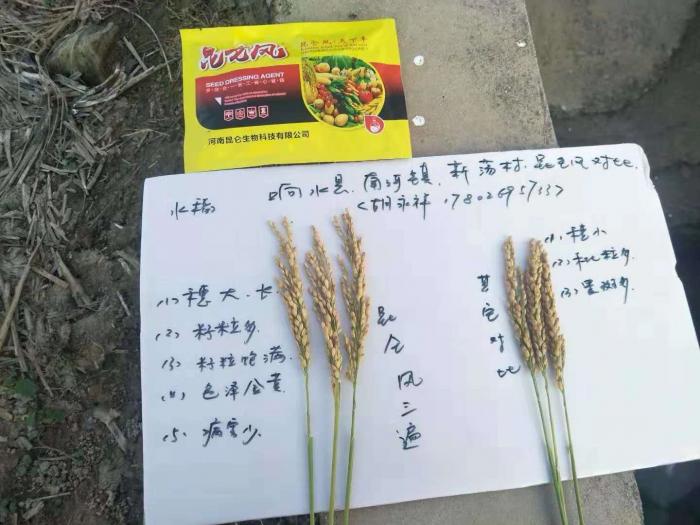 昆仑风
SEED DRESSING AGENT
河南昆仑生物科技有限公司
水稻
响水县 南河镇 新荡村 昆仑风对比
(1) 穗大、长
(2) 籽粒多
(3) 籽粒饱满
(4) 色泽金黄
(5) 病害少
昆仑风三遍
其它对比
(1) 穗小
(2) 秕粒多